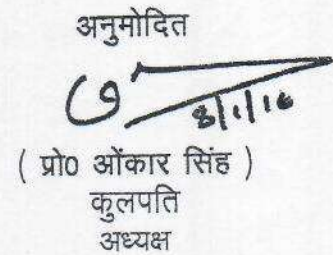 अनुमोदित
8/1/16
( प्रो0 ओंकार सिंह )
कुलपति
अध्यक्ष